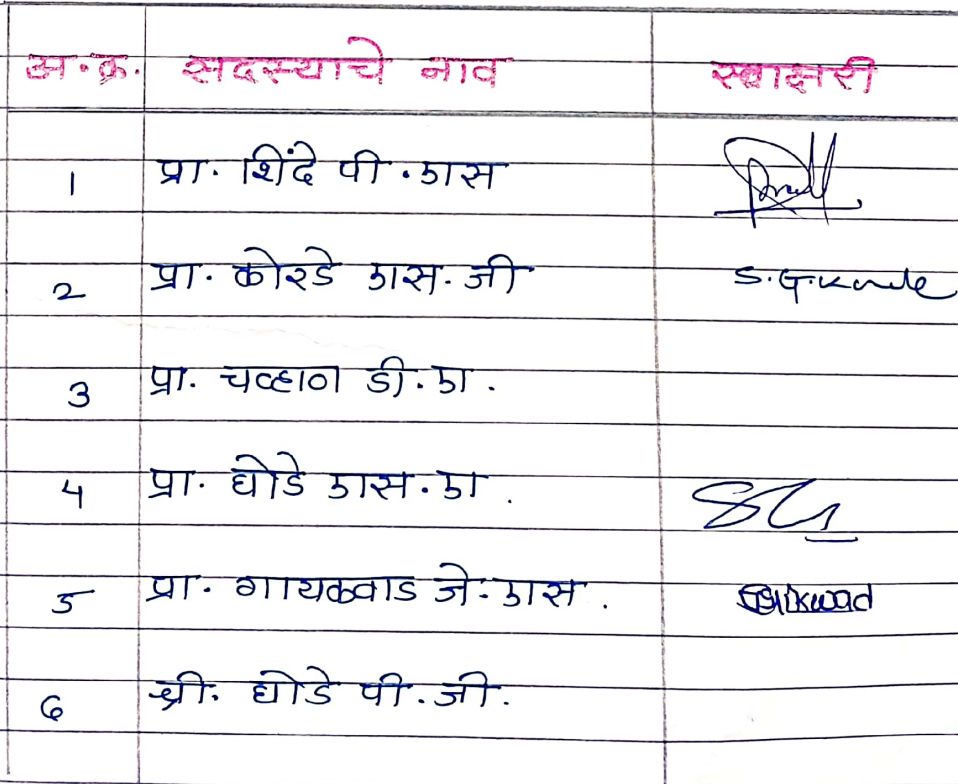 अ.क्र. सदस्याचे नाव स्वाक्षरी
1 प्रा. शिंदे पी.एस
2 प्रा. कोरडे एस.जी S.G.Korde
3 प्रा. चव्हाण डी.ए.
4 प्रा. घोडे एस.ए.
5 प्रा. गायकवाड जे.एस. Gaikwad
6 श्री. घोडे पी.जी.